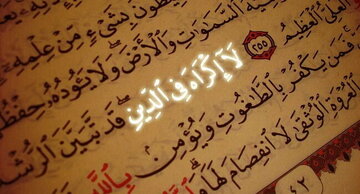 بِشَىْءٍ مِّنْ عِلْمِهِ
السَّمَٰوَٰتِ وَالْأَرْضَ وَلَا يَـُٔودُهُ
الْعَلِيُّ الْعَظِيمُ ٢٥٥ لَآ إِكْرَاهَ فِي الدِّينِ قَد تَّبَيَّنَ الرُّشْدُ
فَمَن يَكْفُرْ بِالطَّٰغُوتِ وَيُؤْمِنۢ بِاللَّهِ
الْعُرْوَةِ الْوُثْقَىٰ لَا انفِصَامَ لَهَا